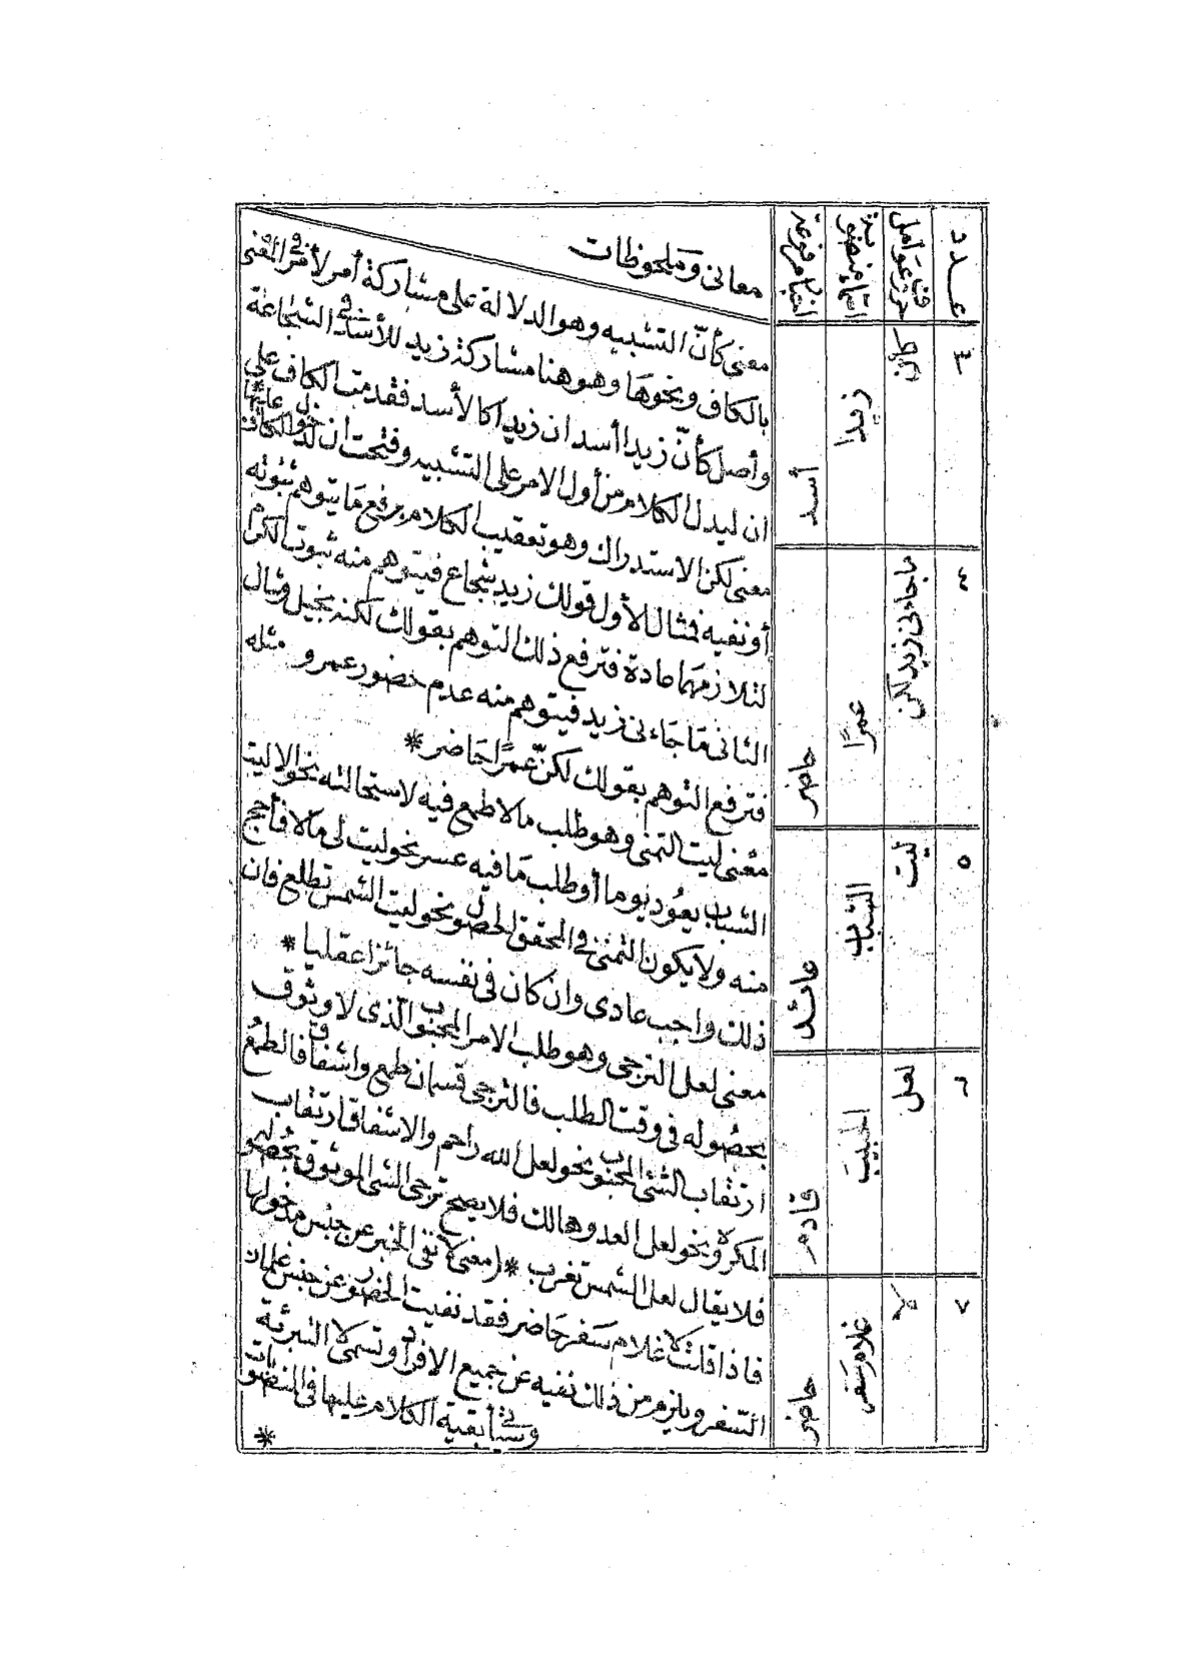 عدد
حروف عوامل
اسماء منصوبة
اخبار مرفوعة
معانى وملحوظات
٣
كأن
زيدا
أسد
معنى كأنّ التشبيه وهو الدلالة على مشاركة أمر لأمر فى المعنى
بالكاف ونحوها وهو هنا مشاركة زيد للأسد فى الشجاعة
وأصل كأنّ زيدا أسد ان زيدا كالأسد فقدمت الكاف على
ان ليدل الكلام من أول الامر على التشبيه وفتحت ان لدخول الكاف عليها
٤
ما جاءنى زيد لكن
عمرًا
حاضر
معنى لكن الاستدراك وهو تعقيب الكلام برفع مَا يتوهم ثبوته
أو نفيه فمثال الأول قولك زيد شجاع فيتوهم منه ثبوت الكرم
لتلازمهما عادة فترفع ذلك التوهم بقولك لكنه بخيل ومثال
الثانى مَا جَاءنى زيد فيتوهم منه عدم حضور عمرو مثله
فترفع التوهم بقولك لكنّ عمرًا حَاضر *
٥
ليت
الشباب
عائد
معْنى ليت التمنى وهو طلب مالا طمع فيه لاستحالته نحو ألا ليت
الشباب يعُود يوما أو طلب مَا فيه عسر نحو ليت لى مالا فأحج
منه ولا يكون التمنى فى المحقق الحصول نحو ليت الشمس تطلع فان
ذلك واجب عادى وان كان فى نفسه جائزا عقليا *
٦
لعل
الحبيبَ
قادم
معنى لعل الترجى وهو طلب الامر المحبوب الّذى لا وثوق
بحصُوله فى وقت الطلب فالترجى قسمان طمع واشفاق فالطمعُ
ارتقاب الشئ المحبوب نحو لعل الله راحم والاشفاق ارتقاب
المكروه نحو لعل العدو هالك فلا يصح ترجى الشئ الموثوق بحُصوله
فلا يقال لعل الشمس تغرب * (معنى لا نفى الخبر عن جنس مدخولها
٧
لا
غلام سَفر
حاضر
فاذا قلت لا غلام سَفر حَاضر فقد نفيت الحضور عن جنس غلمان
السّفر ويلزم من ذلك نفيه عن جميع الافراد وتسمى لا التبرئة
وستأتى بقية الكلام عليها فى المنصوبات
*